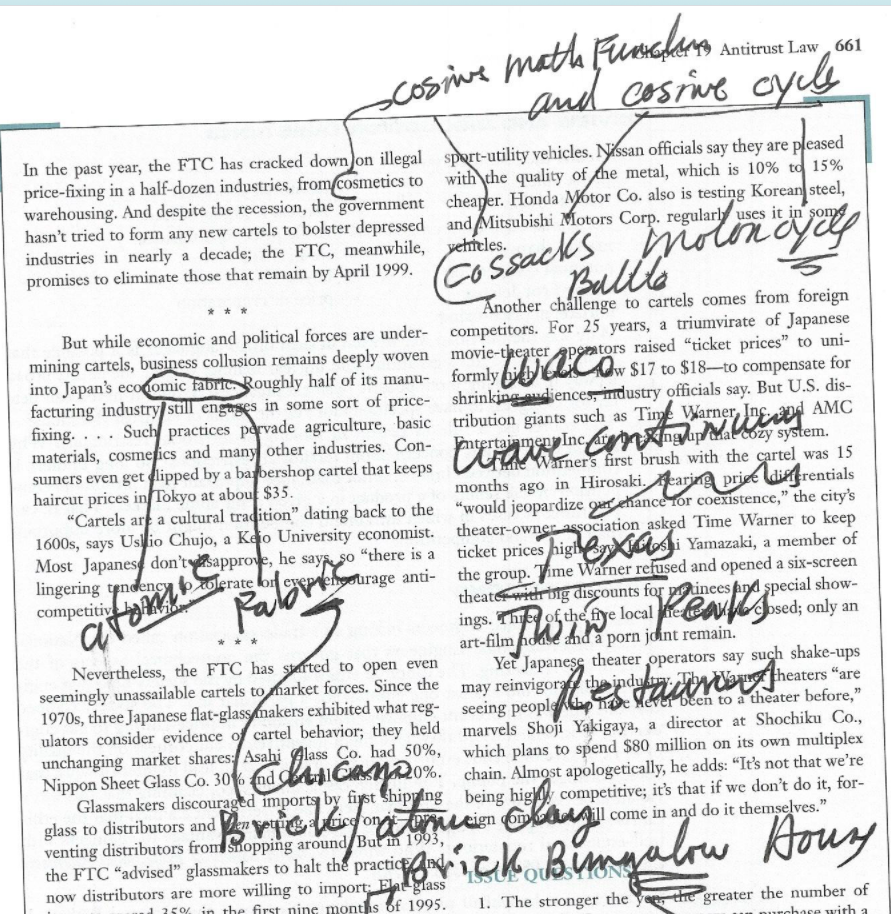 cosine math Function
Chapter 19 Antitrust Law 661
and cosine cycle
In the past year, the FTC has cracked down on illegal
price-fixing in a half-dozen industries, from cosmetics to
warehousing. And despite the recession, the government
hasn't tried to form any new cartels to bolster depressed
industries in nearly a decade; the FTC, meanwhile,
promises to eliminate those that remain by April 1999.
* * *
But while economic and political forces are under-
mining cartels, business collusion remains deeply woven
into Japan's economic fabric. Roughly half of its manu-
facturing industry still engages in some sort of price-
fixing. . . . Such practices pervade agriculture, basic
materials, cosmetics and many other industries. Con-
sumers even get clipped by a barbershop cartel that keeps
haircut prices in Tokyo at about $35.
"Cartels are a cultural tradition" dating back to the
1600s, says Uskio Chujo, a Keio University economist.
Most Japanese don't disapprove, he says, so "there is a
lingering tendency to tolerate or even encourage anti-
competitive behavior."
atomic Fabric
* * *
Nevertheless, the FTC has started to open even
seemingly unassailable cartels to market forces. Since the
1970s, three Japanese flat-glass makers exhibited what reg-
ulators consider evidence of cartel behavior; they held
unchanging market shares: Asahi Glass Co. had 50%,
Nippon Sheet Glass Co. 30% and Central Glass 20%.
Chicago
Glassmakers discouraged imports by first shipping
glass to distributors and then setting a price on it—pre-
venting distributors from shopping around. But in 1993,
the FTC "advised" glassmakers to halt the practice, and
now distributors are more willing to import. Flat-glass
35% in the first nine months of 1995.
Brick/atomic clay
Brick Bungalow House
sport-utility vehicles. Nissan officials say they are pleased
with the quality of the metal, which is 10% to 15%
cheaper. Honda Motor Co. also is testing Korean steel,
and Mitsubishi Motors Corp. regularly uses it in some
vehicles.
Cossacks Motorcycle
* * *
Another challenge to cartels comes from foreign
competitors. For 25 years, a triumvirate of Japanese
movie-theater operators raised "ticket prices" to uni-
formly high levels—now $17 to $18—to compensate for
shrinking audiences, industry officials say. But U.S. dis-
tribution giants such as Time Warner Inc. and AMC
Entertainment Inc. are breaking up that cozy system.
Waco
wave continuum
Time Warner's first brush with the cartel was 15
months ago in Hirosaki. Fearing price differentials
"would jeopardize our chance for coexistence," the city's
theater-owner association asked Time Warner to keep
ticket prices high, says Hitoshi Yamazaki, a member of
the group. Time Warner refused and opened a six-screen
theater with big discounts for matinees and special show-
ings. Three of the five local theaters have closed; only an
art-film house and a porn joint remain.
Texas
Twin Peaks
Restaurant
Yet Japanese theater operators say such shake-ups
may reinvigorate the industry. The Warner theaters "are
seeing people who have never been to a theater before,"
marvels Shoji Yakigaya, a director at Shochiku Co.,
which plans to spend $80 million on its own multiplex
chain. Almost apologetically, he adds: "It's not that we're
being highly competitive; it's that if we don't do it, for-
eign companies will come in and do it themselves."
ISSUE QUESTIONS
1. The stronger the yen, the greater the number of
purchase with a